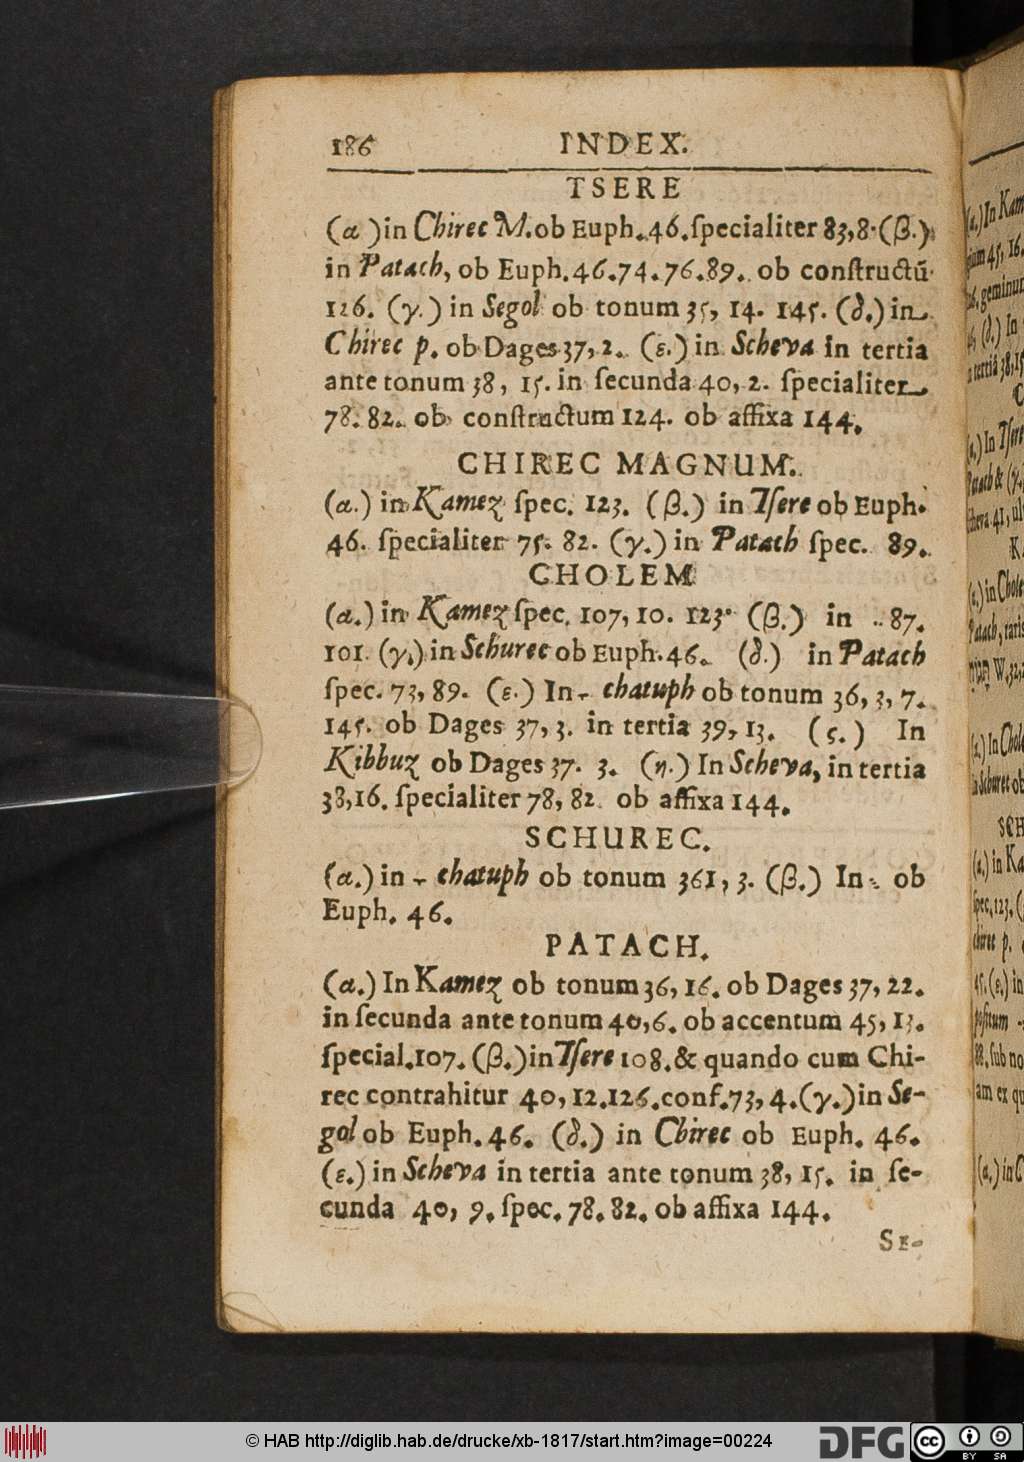 186 INDEX.
TSERE
(α )in Chirec M.ob Euph.46.ſpecialiter 83,8.(β.)
in Patach, ob Euph.46.74.76.89. ob conſtructū
126. (γ.) in Segol ob tonum 35, 14. 145. (δ.) in
Chirec p. ob Dages 37,2. (ε.) in Scheva in tertia
ante tonum 38, 15. in ſecunda 40, 2. ſpecialiter
78. 82. ob conſtructum 124. ob affixa 144.
CHIREC MAGNUM.
(α.) in Kamez ſpec. 123. (β.) in Tſere ob Euph.
46. ſpecialiter 75. 82. (γ.) in Patach ſpec. 89.
CHOLEM
(α.) in Kamez ſpec. 107, 10. 123. (β.) in .. 87.
101. (γ.) in Schurec ob Euph. 46. (δ.) in Patach
ſpec. 73, 89. (ε.) In chatuph ob tonum 36, 3, 7.
145. ob Dages 37, 3. in tertia 39, 13. (ς.) In
Kibbuz ob Dages 37. 3. (η.) In Scheva, in tertia
38,16. ſpecialiter 78, 82. ob affixa 144.
SCHUREC.
(α.) in chatuph ob tonum 361, 3. (β.) In ob
Euph. 46.
PATACH.
(α.) In Kamez ob tonum 36, 16. ob Dages 37, 22.
in ſecunda ante tonum 40,6. ob accentum 45, 13.
ſpecial.107. (β.) in Tſere 108.& quando cum Chi-
rec contrahitur 40, 12.126.conf.73, 4.(γ.) in Se-
gol ob Euph. 46. (δ.) in Chirec ob Euph. 46.
(ε.) in Scheva in tertia ante tonum 38, 15. in ſe-
cunda 40, 9. ſpec. 78. 82. ob affixa 144.
SE-
© HAB http://diglib.hab.de/drucke/xb-1817/start.htm?image=00224
DFG
cc BY SA